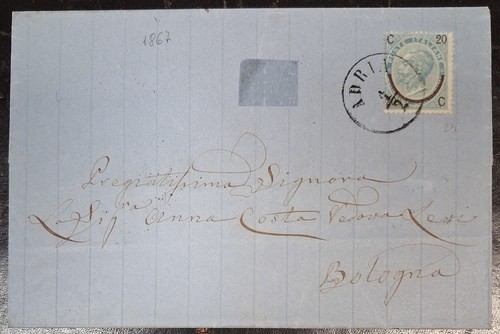 1867
C 20
ADRIA
C
Pregiatissima Signora
La Sig.ra Anna Costa Vedova Levi
Bologna